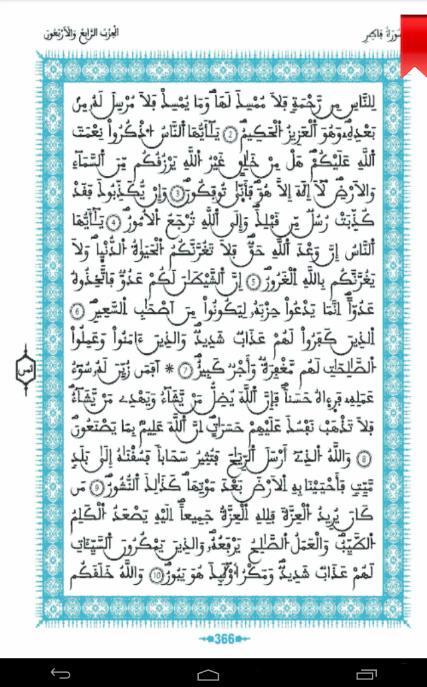 سُورَةُ فَاطِرٍ
الْحِزْبُ الرَّابِعُ وَالْأَرْبَعُونَ
لِلنَّاسِ مِن رَّحْمَةٍ فَلَا مُمْسِكَ لَهَا وَمَا يُمْسِكْ فَلَا مُرْسِلَ لَهُۥ مِنۢ
بَعْدِهِۦ وَهُوَ اَ۬لْعَزِيزُ اُ۬لْحَكِيمُ ② يَٰٓأَيُّهَا اَ۬لنَّاسُ اُ۟ذْكُرُوا۟ نِعْمَتَ
اَ۬للَّهِ عَلَيْكُمْ هَلْ مِنْ خَٰلِقٍ غَيْرُ اُ۬للَّهِ يَرْزُقُكُم مِّنَ اَ۬لسَّمَآءِ
وَالْأَرْضِ لَآ إِلَٰهَ إِلَّا هُوَ فَأَنَّىٰ تُوفَكُونَ ③ وَإِنْ يُّكَذِّبُوكَ فَقَدْ
كُذِّبَتْ رُسُلٌ مِّن قَبْلِكَ وَإِلَى اَ۬للَّهِ تُرْجَعُ اُ۬لْأُمُورُ ④ يَٰٓأَيُّهَا
اَ۬لنَّاسُ إِنَّ وَعْدَ اَ۬للَّهِ حَقٌّ فَلَا تَغُرَّنَّكُمُ اُ۬لْحَيَوٰةُ اُ۬لدُّنْيَا وَلَا
يَغُرَّنَّكُم بِاللَّهِ اِ۬لْغَرُورُ ⑤ إِنَّ اَ۬لشَّيْطَٰنَ لَكُمْ عَدُوٌّ فَاتَّخِذُوهُ
عَدُوًّا إِنَّمَا يَدْعُوا۟ حِزْبَهُۥ لِيَكُونُوا۟ مِنْ أَصْحَٰبِ اِ۬لسَّعِيرِ ⑥
اِ۬لذِينَ كَفَرُوا۟ لَهُمْ عَذَابٌ شَدِيدٌ وَالذِينَ ءَامَنُوا۟ وَعَمِلُوا۟
اُ۬لصَّٰلِحَٰتِ لَهُم مَّغْفِرَةٌ وَأَجْرٌ كَبِيرٌ ⑦ * أَفَمَن زُيِّنَ لَهُۥ سُوٓءُ
عَمَلِهِۦ فَرَءَاهُ حَسَنًا فَإِنَّ اَ۬للَّهَ يُضِلُّ مَنْ يَّشَآءُ وَيَهْدِي مَنْ يَّشَآءُ
فَلَا تَذْهَبْ نَفْسُكَ عَلَيْهِمْ حَسَرَٰتٍ إِنَّ اَ۬للَّهَ عَلِيمٌۢ بِمَا يَصْنَعُونَ
⑧ وَاللَّهُ اُ۬لذِےٓ أَرْسَلَ اَ۬لرِّيَٰحَ فَتُثِيرُ سَحَابًا فَسُقْنَٰهُ إِلَىٰ بَلَدٍ
مَّيِّتٍ فَأَحْيَيْنَا بِهِ اِ۬لْأَرْضَ بَعْدَ مَوْتِهَا كَذَٰلِكَ اَ۬لنُّشُورُ ⑨ مَن
كَانَ يُرِيدُ اُ۬لْعِزَّةَ فَلِلهِ اِ۬لْعِزَّةُ جَمِيعًا إِلَيْهِ يَصْعَدُ اُ۬لْكَلِمُ
اُ۬لطَّيِّبُ وَالْعَمَلُ اُ۬لصَّٰلِحُ يَرْفَعُهُۥ وَالذِينَ يَمْكُرُونَ اَ۬لسَّيِّـَٔاتِ
لَهُمْ عَذَابٌ شَدِيدٌ وَمَكْرُ أُو۟لَٰٓئِكَ هُوَ يَبُورُ ⑩ وَاللَّهُ خَلَقَكُم
ثمن
366